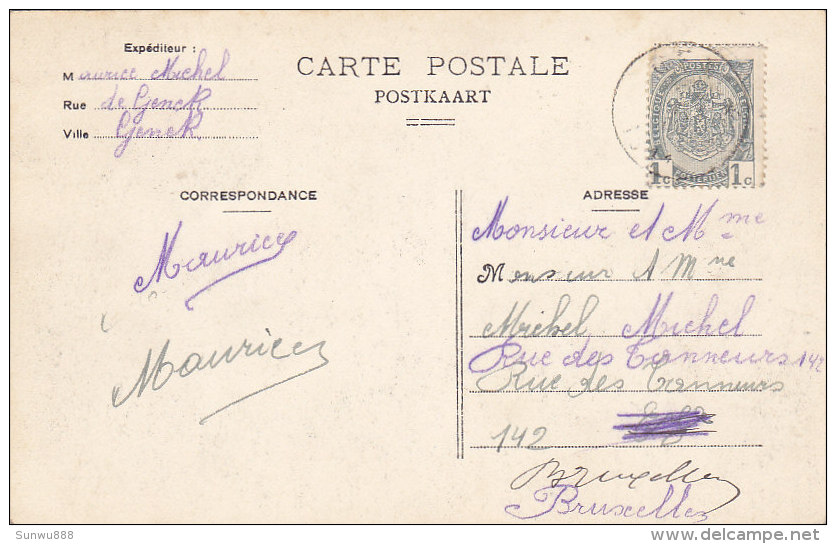 Expéditeur :
Maurice Michel
Rue de Genck
Ville Genck
CARTE POSTALE
POSTKAART
POSTES
1c 1c
POSTERIJEN
CORRESPONDANCE
Maurice
Maurice
ADRESSE
Monsieur et Mme
Monsieur A Mme
Michel Michel
Rue des Tanneurs 142
Rue des Tanneurs
142
Bruxelles
Bruxelles
Sunwu888
www.delcampe.net